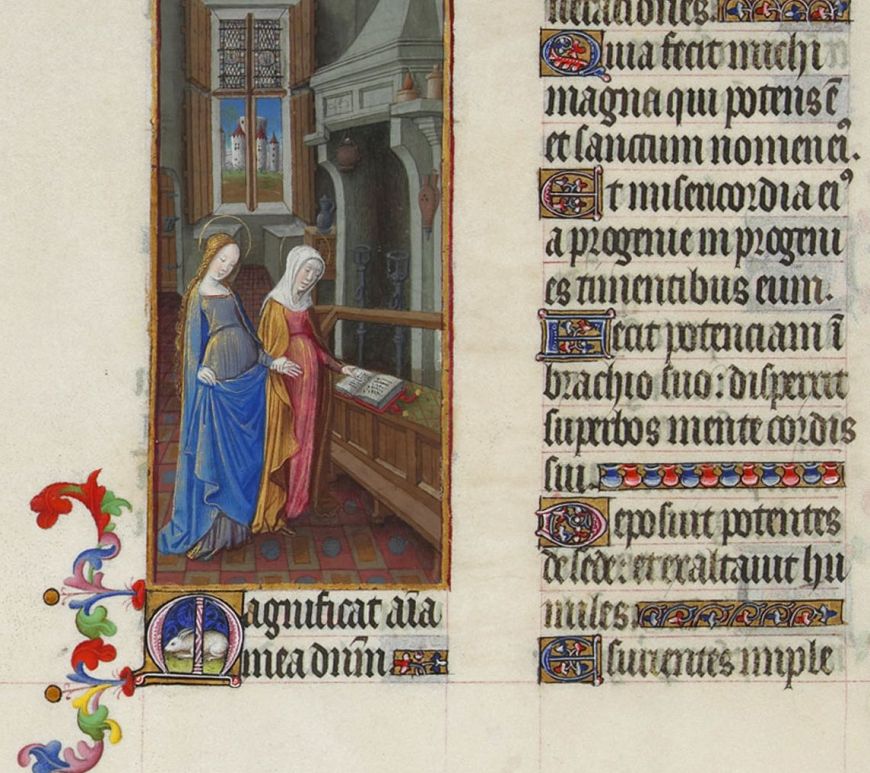 Magnificat aīa
mea dn̄m
nerationes.
Quia fecit michi
magna qui potens ē
et sanctum nomen eiꝰ.
Et misericordia eiꝰ
a progenie in progeni
es timentibus eum.
Fecit potenciam ī
brachio suo: disperxit
superbos mente cordis
sui.
Deposuit potentes
de sede: et exaltauit hu
miles.
Esurientes imple